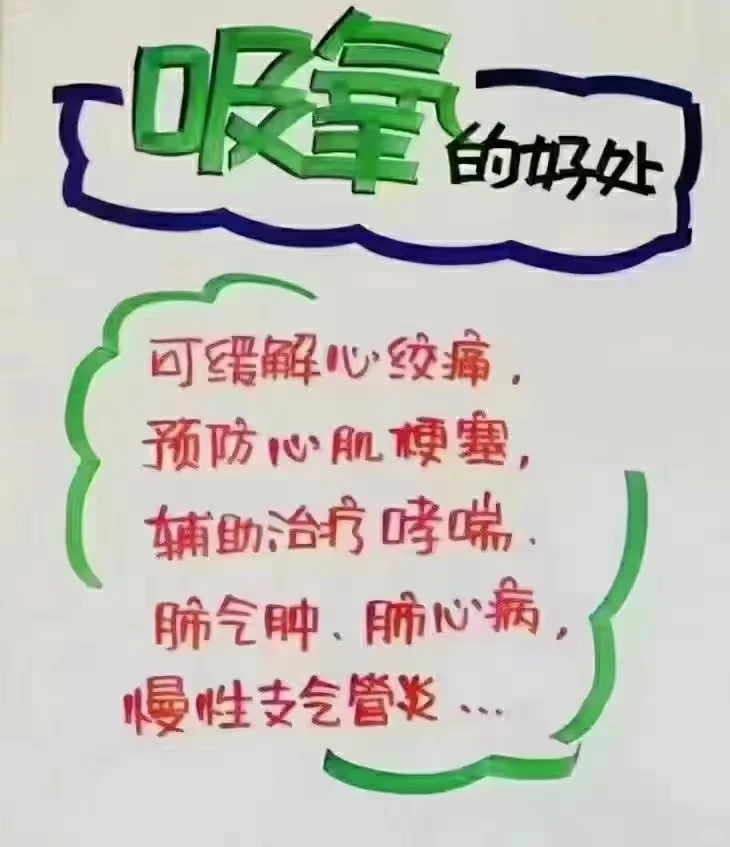 吸氧的好处
可缓解心绞痛，
预防心肌梗塞，
辅助治疗哮喘、
肺气肿、肺心病，
慢性支气管炎…